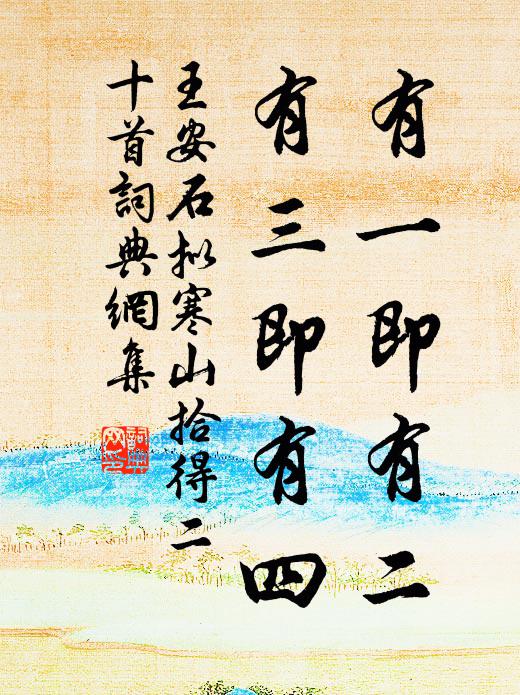 有一即有二
有三即有四
王安石拟寒山拾得二
十首詞典網集